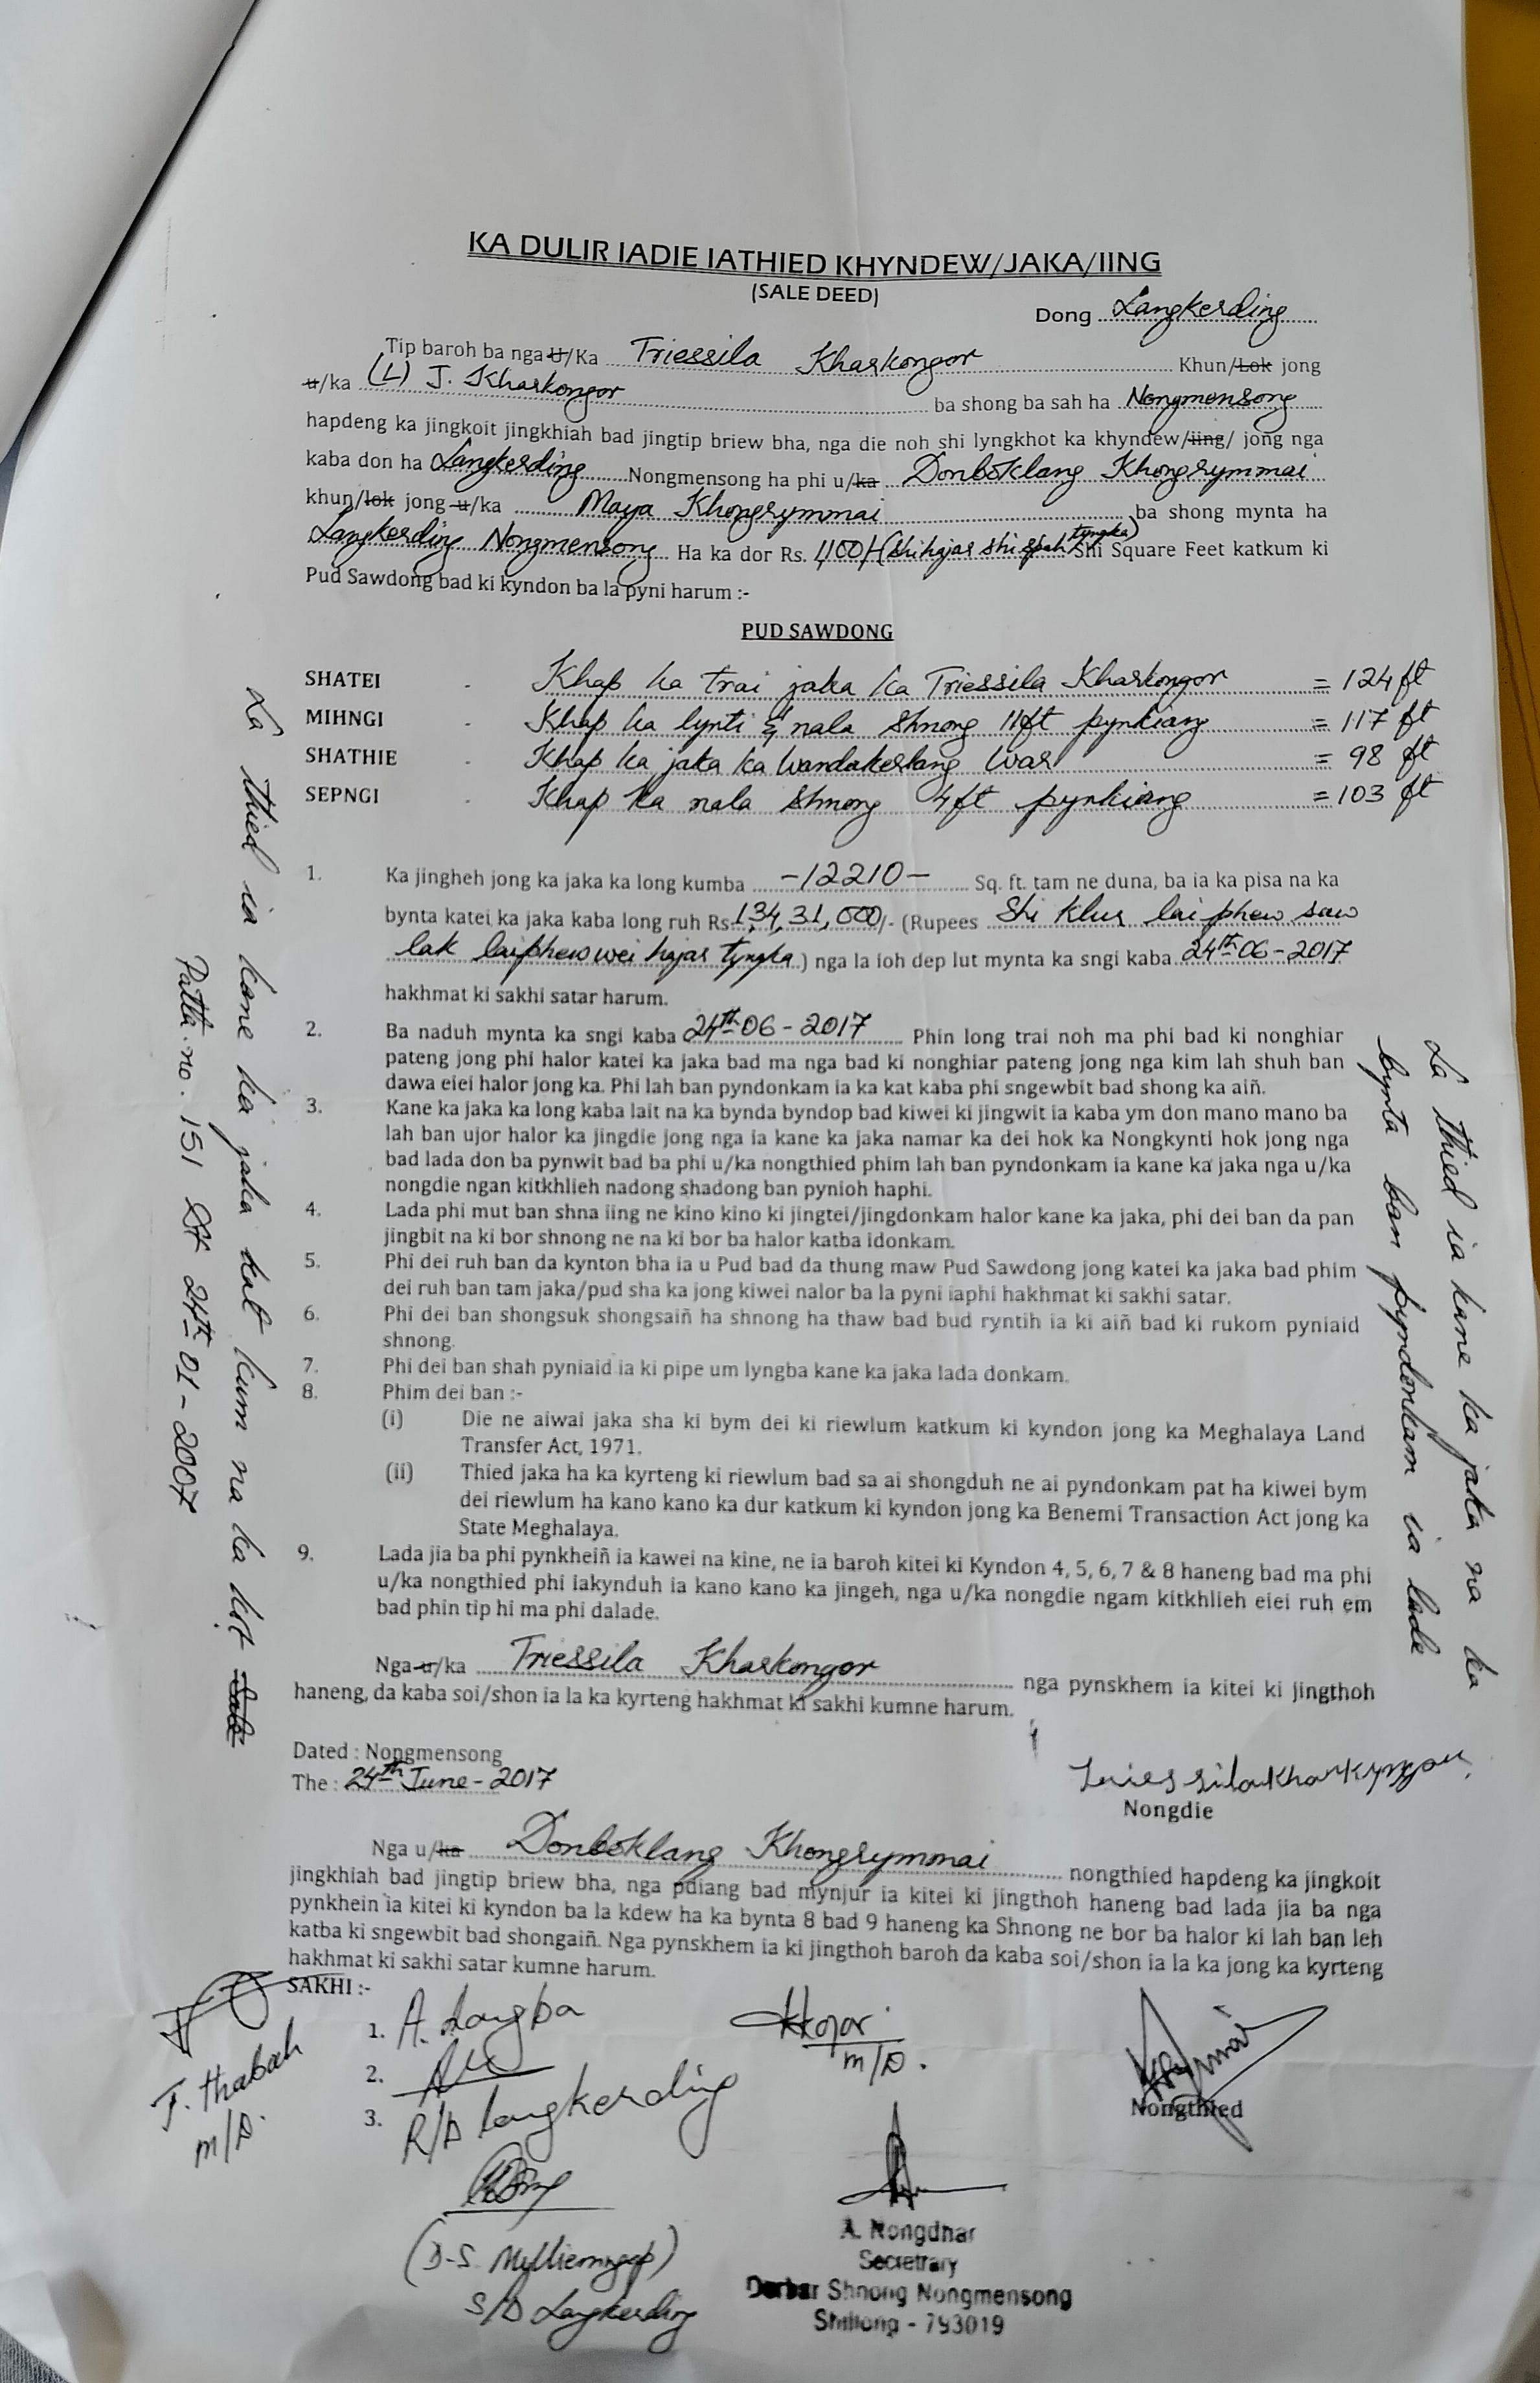 KA DULIR IADIE IATHIED KHYNDEW/JAKA/IING
(SALE DEED)
Dong Langkerding
Tip baroh ba nga U/Ka Triessila Kharkongor Khun/Lok jong
u/ka (L) J. Kharkongor ba shong ba sah ha Nongmensong
hapdeng ka jingkoit jingkhiah bad jingtip briew bha, nga die noh shi lyngkhot ka khyndew/iing/ jong nga
kaba don ha Langkerding Nongmensong ha phi u/ka Donboklang Khongrymmai
khun/lok jong u/ka Maya Khongrymmai ba shong mynta ha
Langkerding Nongmensong Ha ka dor Rs. 1100/- (shi hajar shi spah tyngka) Shi Square Feet katkum ki
Pud Sawdong bad ki kyndon ba la pyni harum :-
PUD SAWDONG
SHATEI - Khap ka trai jaka ka Triessila Kharkongor = 124 ft
MIHNGI - Khap ka lynti & nala Shnong 11ft pynkiang = 117 ft
SHATHIE - Khap ka jaka ka Wandakerlang War = 98 ft
SEPNGI - Khap ka nala Shnong 4ft pynkiang = 103 ft
1. Ka jingheh jong ka jaka ka long kumba -12210- Sq. ft. tam ne duna, ba ia ka pisa na ka
bynta katei ka jaka kaba long ruh Rs. 1,34,31,000/- (Rupees Shi klur lai phew saw
lak laiphew wei hajar tyngka) nga la ioh dep lut mynta ka sngi kaba 24th-06-2017
hakhmat ki sakhi satar harum.
2. Ba naduh mynta ka sngi kaba 24th-06-2017 Phin long trai noh ma phi bad ki nonghiar
pateng jong phi halor katei ka jaka bad ma nga bad ki nonghiar pateng jong nga kim lah shuh ban
dawa eiei halor jong ka. Phi lah ban pyndonkam ia ka kat kaba phi sngewbit bad shong ka aiñ.
3. Kane ka jaka ka long kaba lait na ka bynda byndop bad kiwei ki jingwit ia kaba ym don mano mano ba
lah ban ujor halor ka jingdie jong nga ia kane ka jaka namar ka dei hok ka Nongkynti hok jong nga
bad lada don ba pynwit bad ba phi u/ka nongthied phim lah ban pyndonkam ia kane ka jaka nga u/ka
nongdie ngan kitkhlieh nadong shadong ban pynioh haphi.
4. Lada phi mut ban shna iing ne kino kino ki jingtei/jingdonkam halor kane ka jaka, phi dei ban da pan
jingbit na ki bor shnong ne na ki bor ba halor katba idonkam.
5. Phi dei ruh ban da kynton bha ia u Pud bad da thung maw Pud Sawdong jong katei ka jaka bad phim
dei ruh ban tam jaka/pud sha ka jong kiwei nalor ba la pyni iaphi hakhmat ki sakhi satar.
6. Phi dei ban shongsuk shongsaiñ ha shnong ha thaw bad bud ryntih ia ki aiñ bad ki rukom pyniaid
shnong.
7. Phi dei ban shah pyniaid ia ki pipe um lyngba kane ka jaka lada donkam.
8. Phim dei ban :-
(i) Die ne aiwai jaka sha ki bym dei ki riewlum katkum ki kyndon jong ka Meghalaya Land
Transfer Act, 1971.
(ii) Thied jaka ha ka kyrteng ki riewlum bad sa ai shongduh ne ai pyndonkam pat ha kiwei bym
dei riewlum ha kano kano ka dur katkum ki kyndon jong ka Benemi Transaction Act jong ka
State Meghalaya.
9. Lada jia ba phi pynkheiñ ia kawei na kine, ne ia baroh kitei ki Kyndon 4, 5, 6, 7 & 8 haneng bad ma phi
u/ka nongthied phi iakynduh ia kano kano ka jingeh, nga u/ka nongdie ngam kitkhlieh eiei ruh em
bad phin tip hi ma phi dalade.
Nga u/ka Triessila Kharkongor nga pynskhem ia kitei ki jingthoh
haneng, da kaba soi/shon ia la ka kyrteng hakhmat ki sakhi kumne harum.
Dated : Nongmensong
The : 24th June-2017
Nongdie
Nga u/ka Donboklang Khongrymmai nongthied hapdeng ka jingkoit
jingkhiah bad jingtip briew bha, nga pdiang bad mynjur ia kitei ki jingthoh haneng bad lada jia ba nga
pynkhein ia kitei ki kyndon ba la kdew ha ka bynta 8 bad 9 haneng ka Shnong ne bor ba halor ki lah ban leh
katba ki sngewbit bad shongaiñ. Nga pynskhem ia ki jingthoh baroh da kaba soi/shon ia la ka jong ka kyrteng
hakhmat ki sakhi satar kumne harum.
SAKHI :-
1. A. Langba
2.
3. R/D Langkerding
M/D.
Nongthied
T. Thabah
M/D.
S/D Langkerding
A. Nongdhar
Secretrary
Dorbar Shnong Nongmensong
Shillong - 793019
La thied ia kane ka jaka kat kum na ka krt
Patta no. 151 Of 24th-01-2007
La thied ia kane ka jaka na ka
bynta ban pyndonkam ia lade